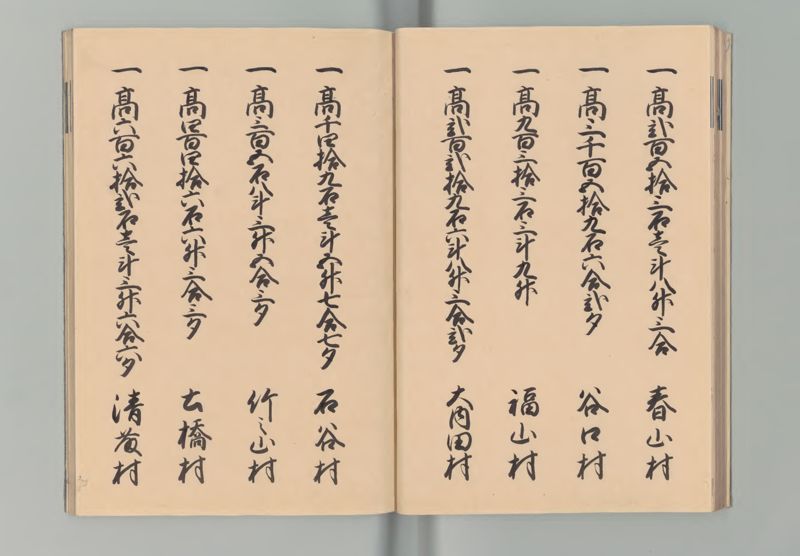 一 高弐百五拾三石壱斗八升三合 春山村
一 高三千百五拾九石六合弐夕 谷口村
一 高九百三拾三石三斗九升 福山村
一 高弐百弐拾九石六斗八升三合弐夕 大内田村
一 高千四拾九石壱斗五升七合七夕 石谷村
一 高三百五石八斗三升五合三夕 竹之山村
一 高四百四拾六石六升三合三夕 土橋村
一 高六百六拾弐石壱斗三升六合六夕 清藤村